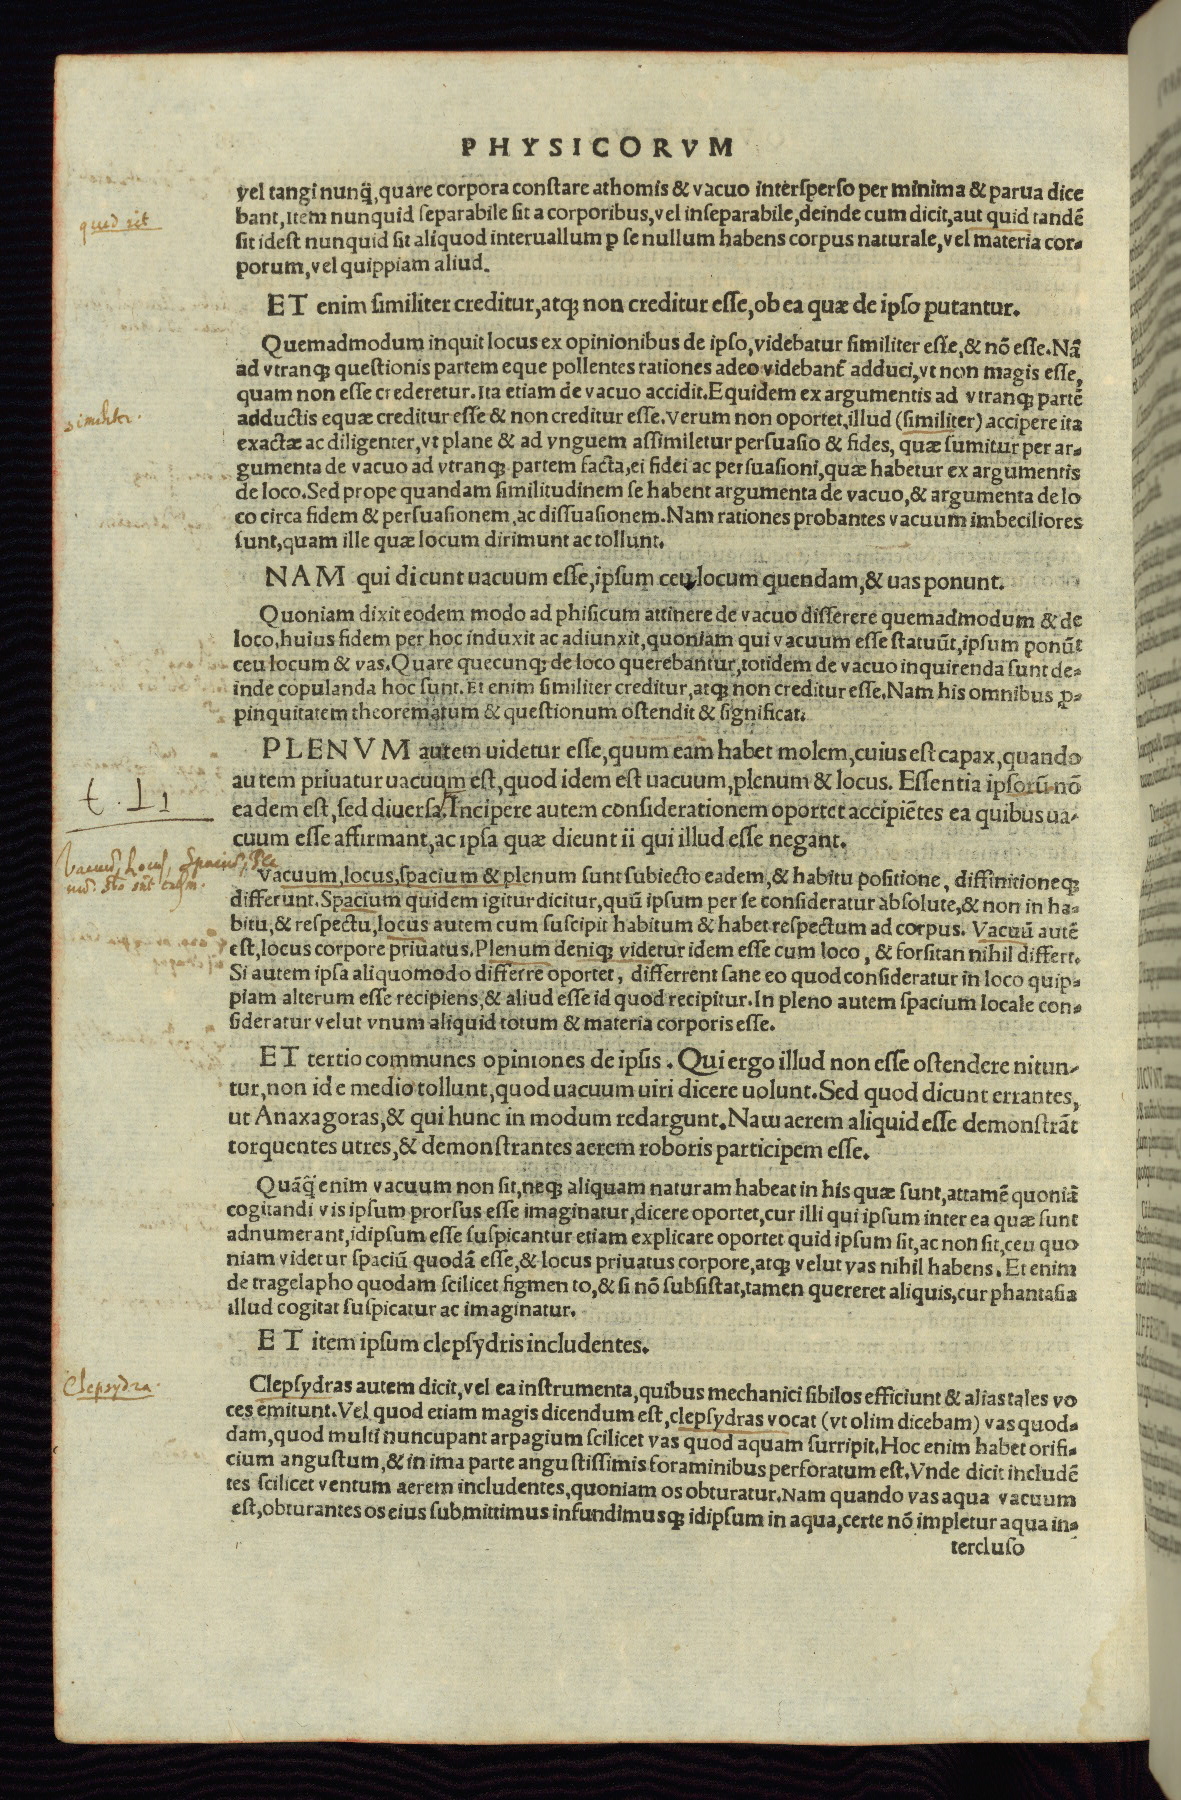 PHYSICORVM
vel tangi nunq̃, quare corpora constare athomis & vacuo intersperso per minima & parua dice
bant, item nunquid separabile sit a corporibus, vel inseparabile, deinde cum dicit, aut quid tandē
quid sit
sit idest nunquid sit aliquod interuallum ꝑ se nullum habens corpus naturale, vel materia cor-
porum, vel quippiam aliud.
ET enim similiter creditur, atqꝫ non creditur esse, ob ea quæ de ipso putantur.
Quemadmodum inquit locus ex opinionibus de ipso, videbatur similiter esse, & nō esse. Nā
ad vtranqꝫ questionis partem eque pollentes rationes adeo videbant̃ adduci, vt non magis esse,
quam non esse crederetur. Ita etiam de vacuo accidit. Equidem ex argumentis ad vtranqꝫ partē
similiter.
adductis equæ creditur esse & non creditur esse. Verum non oportet, illud (similiter) accipere ita
exactæ ac diligenter, vt plane & ad vnguem assimiletur persuasio & fides, quæ sumitur per ar-
gumenta de vacuo ad vtranqꝫ partem facta, ei fidei ac persuasioni, quæ habetur ex argumentis
de loco. Sed prope quandam similitudinem se habent argumenta de vacuo, & argumenta de lo
co circa fidem & persuasionem, ac dissuasionem. Nam rationes probantes vacuum imbeciliores
sunt, quam ille quæ locum dirimunt ac tollunt.
NAM qui dicunt uacuum esse, ipsum ceu locum quendam, & uas ponunt.
Quoniam dixit eodem modo ad phisicum attinere de vacuo disserere quemadmodum & de
loco, huius fidem per hoc induxit ac adiunxit, quoniam qui vacuum esse statuūt, ipsum ponūt
ceu locum & vas. Quare quecunqꝫ de loco querebantur, totidem de vacuo inquirenda sunt de-
inde copulanda hoc sunt. Et enim similiter creditur, atqꝫ non creditur esse. Nam his omnibus ꝓ-
pinquitatem theorematum & questionum ostendit & significat.
PLENVM autem uidetur esse, quum eam habet molem, cuius est capax, quando
autem priuatur uacuum est, quod idem est uacuum, plenum & locus. Essentia ipsorū nō
eadem est, sed diuersa. Incipere autem considerationem oportet accipiētes ea quibus ua-
cuum esse affirmant, ac ipsa quæ dicunt ii qui illud esse negant.
Vacuum, locus, spacium & plenum sunt subiecto eadem, & habitu positione, diffinitioneqꝫ
differunt. Spacium quidem igitur dicitur, quū ipsum per se consideratur absolute, & non in ha-
bitu, & respectu, locus autem cum suscipit habitum & habet respectum ad corpus. Vacuū autē
est, locus corpore priuatus. Plenum deniqꝫ videtur idem esse cum loco, & forsitan nihil differt.
Si autem ipsa aliquomodo differre oportet, differrent sane eo quod consideratur in loco quip-
piam alterum esse recipiens, & aliud esse id quod recipitur. In pleno autem spacium locale con-
sideratur velut vnum aliquid totum & materia corporis esse.
ET tertio communes opiniones de ipsis. Qui ergo illud non esse ostendere nitun-
tur, non id e medio tollunt, quod uacuum uiri dicere uolunt. Sed quod dicunt errantes,
ut Anaxagoras, & qui hunc in modum redargunt. Nam aerem aliquid esse demonstrāt
torquentes utres, & demonstrantes aerem roboris participem esse.
Quāq̃ enim vacuum non sit, neqꝫ aliquam naturam habeat in his quæ sunt, attamē quoniā
cogitandi vis ipsum prorsus esse imaginatur, dicere oportet, cur illi qui ipsum inter ea quæ sunt
adnumerant, idipsum esse suspicantur etiam explicare oportet quid ipsum sit, ac non sit, ceu quo
niam videtur spaciū quodā esse, & locus priuatus corpore, atqꝫ velut vas nihil habens. Et enim
de tragelapho quodam scilicet figmento, & si nō subsistat, tamen quereret aliquis, cur phantasia
illud cogitat suspicatur ac imaginatur.
ET item ipsum clepsydris includentes.
Clepsydra.
Clepsydras autem dicit, vel ea instrumenta, quibus mechanici sibilos efficiunt & alias tales vo
ces emitunt. Vel quod etiam magis dicendum est, clepsydras vocat (vt olim dicebam) vas quod-
dam, quod multi nuncupant arpagium scilicet vas quod aquam surripit. Hoc enim habet orifi-
cium angustum, & in ima parte angustissimis foraminibus perforatum est. Vnde dicit includē
tes scilicet ventum aerem includentes, quoniam os obturatur. Nam quando vas aqua vacuum
est, obturantes os eius submittimus infundimusqꝫ idipsum in aqua, certe nō impletur aqua in-
tercluso